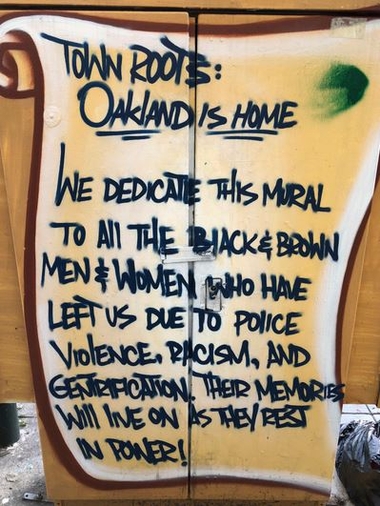 TOWN ROOTS:
OAKLAND IS HOME
WE DEDICATE THIS MURAL
TO All THE BlACK & BROWN
MEN & WOMEN WHO HAVE
LEFT US DUE TO POlICE
ViOlENCE, RACISM, AND
GENTRiFICATION. THEIR MEMORiES
Will liVE ON AS THEY REST
IN POWER!